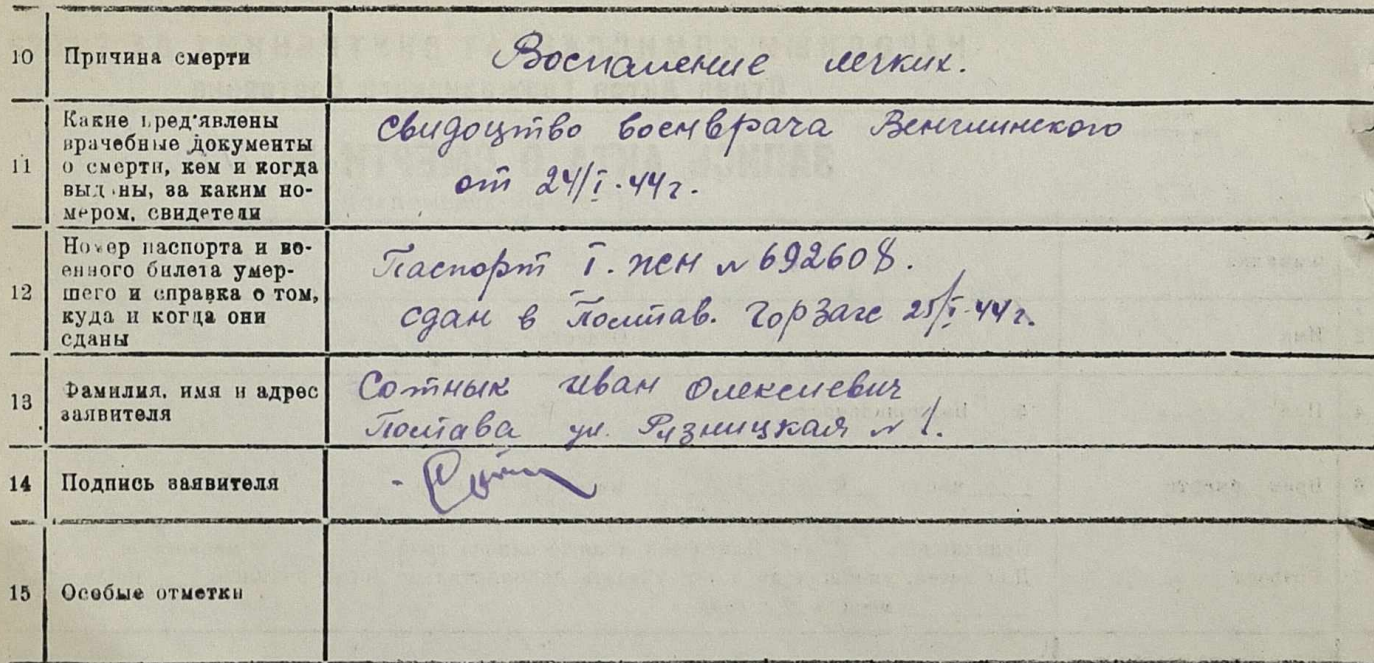 10 Причина смерти Воспаление легких.
11 Какие пред'явлены
врачебные документы
о смерти, кем и когда
выданы, за каким но-
мером, свидетели
Свидоцтво военврача Венглинского
от 24/I·44г.
12 Номер паспорта и во-
енного билета умер-
шего и справка о том,
куда и когда они
сданы
Паспорт I. ЖСН № 692608.
сдан в Полтав. Горзагс 25/I·44г.
13 Фамилия, имя и адрес
заявителя
Сотнык Иван Олексиевич
Полтава ул. Рязницкая № 1.
14 Подпись заявителя
15 Особые отметки